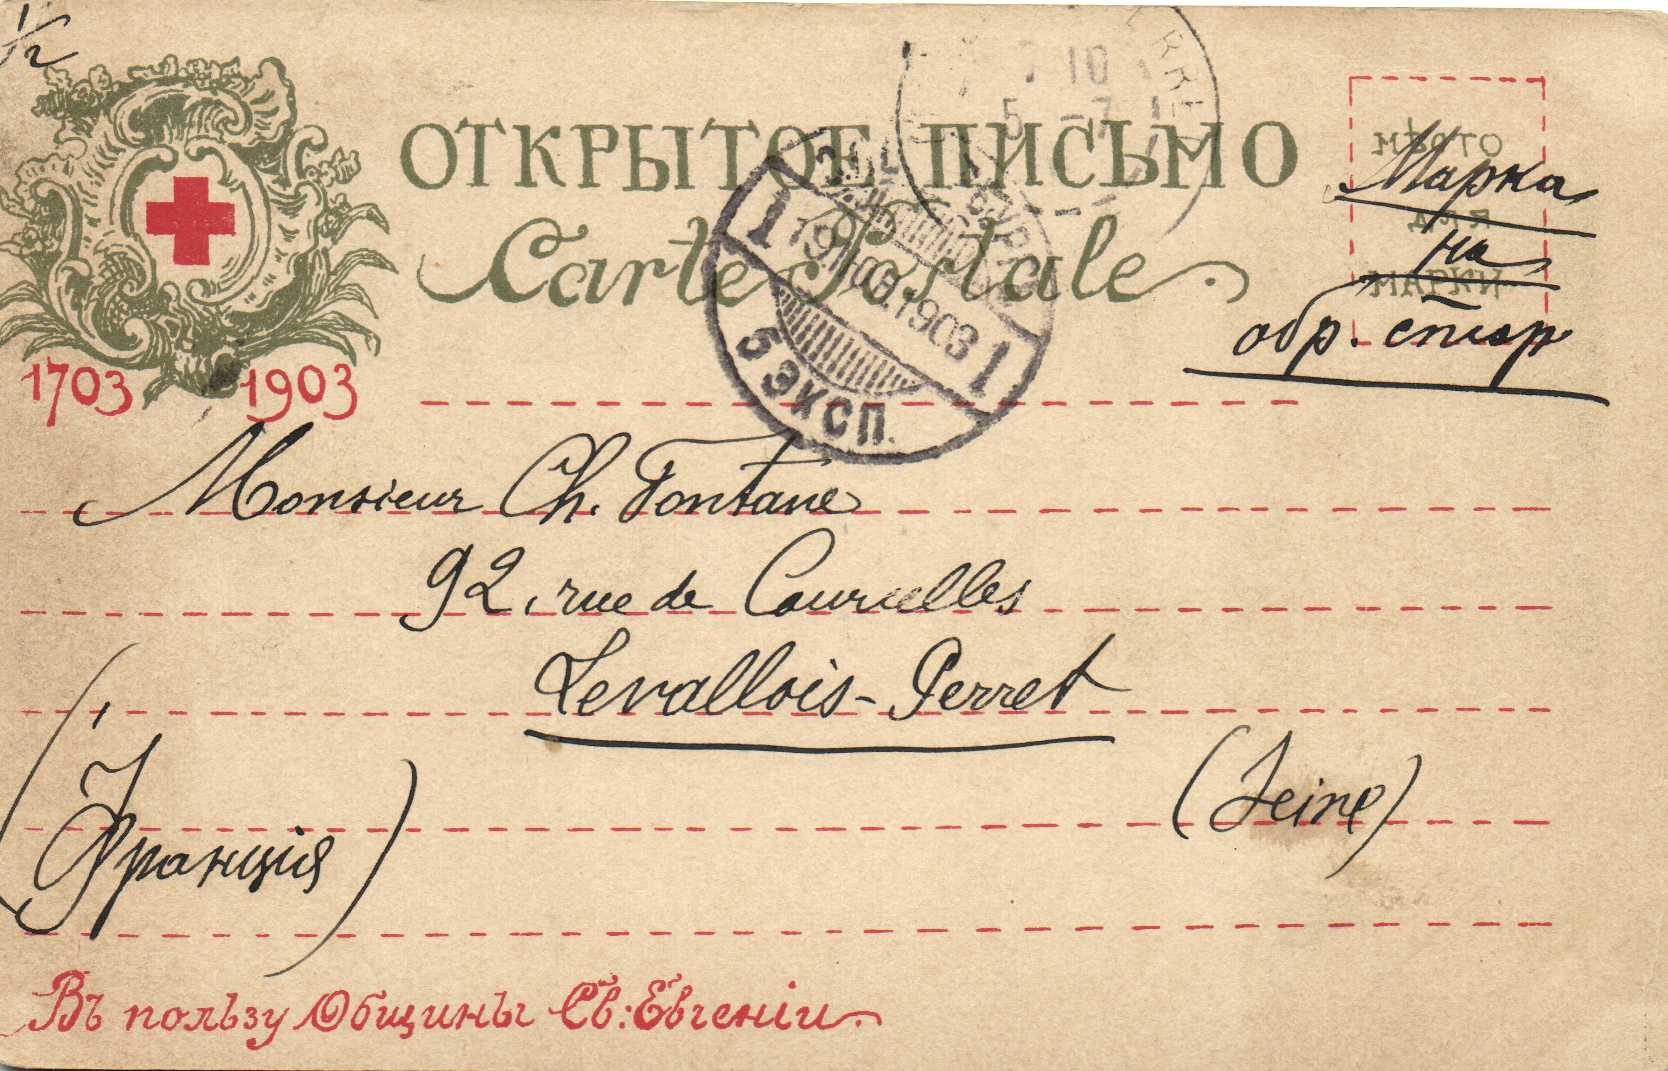 1/2
ОТКРЫТОЕ ПИСЬМО
Carte Postale.
1703 1903
Марка
на
обр. стор
1 19 1903 1
5 ЭКСП.
7 10
5 - 7
Monsieur Ch. Fontane
92, rue de Courcelles
Levallois-Perret
(Seine)
(Франція)
Въ пользу Общины Св: Евгеніи.